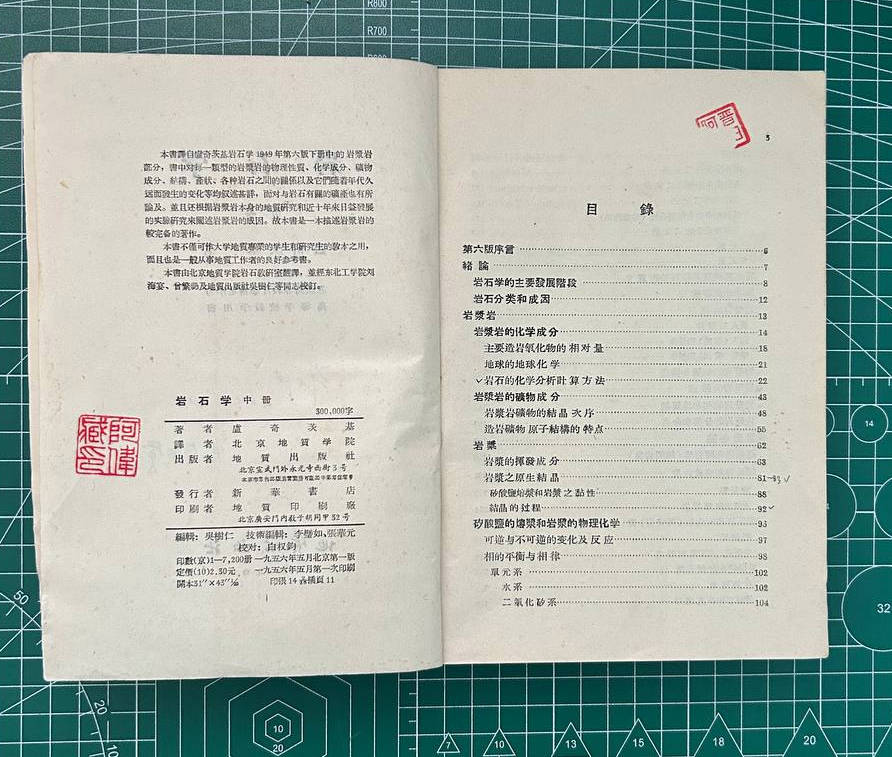 本書譯自盧奇茨基岩石学1949年第六版下册中的岩漿岩
部分，書中对每一類型的岩漿岩的物理性質、化学成分、礦物
成分、結構、產狀、各种岩石之間的關係以及它們隨着年代久
远而發生的变化等均叙述甚詳，而对与岩石有關的礦產也有所
論及。並且还根据岩漿岩本身的地質研究和近十年來日益發展
的实驗研究來闡述岩漿岩的成因。故本書是一本描述岩漿岩的
較完备的著作。
本書不僅可作大学地質專業的学生和研究生的教本之用，
而且也是一般从事地質工作者的良好参考書。
本書由北京地質学院岩石教研室翻譯，並經东北工学院刘
海宴、曾繁礽及地質出版社吳樹仁等同志校訂。
岩石学 中册
300,000字
著者 盧奇茨基
譯者 北京地質学院
出版者 地質出版社
北京宣武門外永光寺西街3号
發行者 新華書店
印刷者 地質印刷廠
北京廣安門內敎子胡同甲32号
編輯：吳樹仁 技術編輯：李璧如、張華元
校对：白权鈞
印数(京)1—7,200册 一九五六年五月北京第一版
定價(10)2.30元 一九五六年五月第一次印刷
開本31"×43"1/25 印張14 插頁11
阿偉藏印
3
目錄
第六版序言……6
緒論……7
岩石学的主要發展階段……8
岩石分类和成因……12
岩漿岩……13
岩漿岩的化学成分……14
主要造岩氧化物的相对量……18
地球的地球化学……21
✓岩石的化学分析計算方法……22
岩漿岩的礦物成分……43
岩漿岩礦物的結晶次序……48
造岩礦物原子結構的特点……55
岩漿……62
岩漿的揮發成分……63
岩漿之原生結晶……81—93✓
矽酸鹽熔漿和岩漿之黏性……88
結晶的过程……92✓
矽酸鹽的熔漿和岩漿的物理化学……95
可逆与不可逆的变化及反应……97
相的平衡与相律……98
單元系……102
水系……102
二氧化矽系……104
R800
R700
14
32
50
20
10
10
20
7
10
13
15
18
20